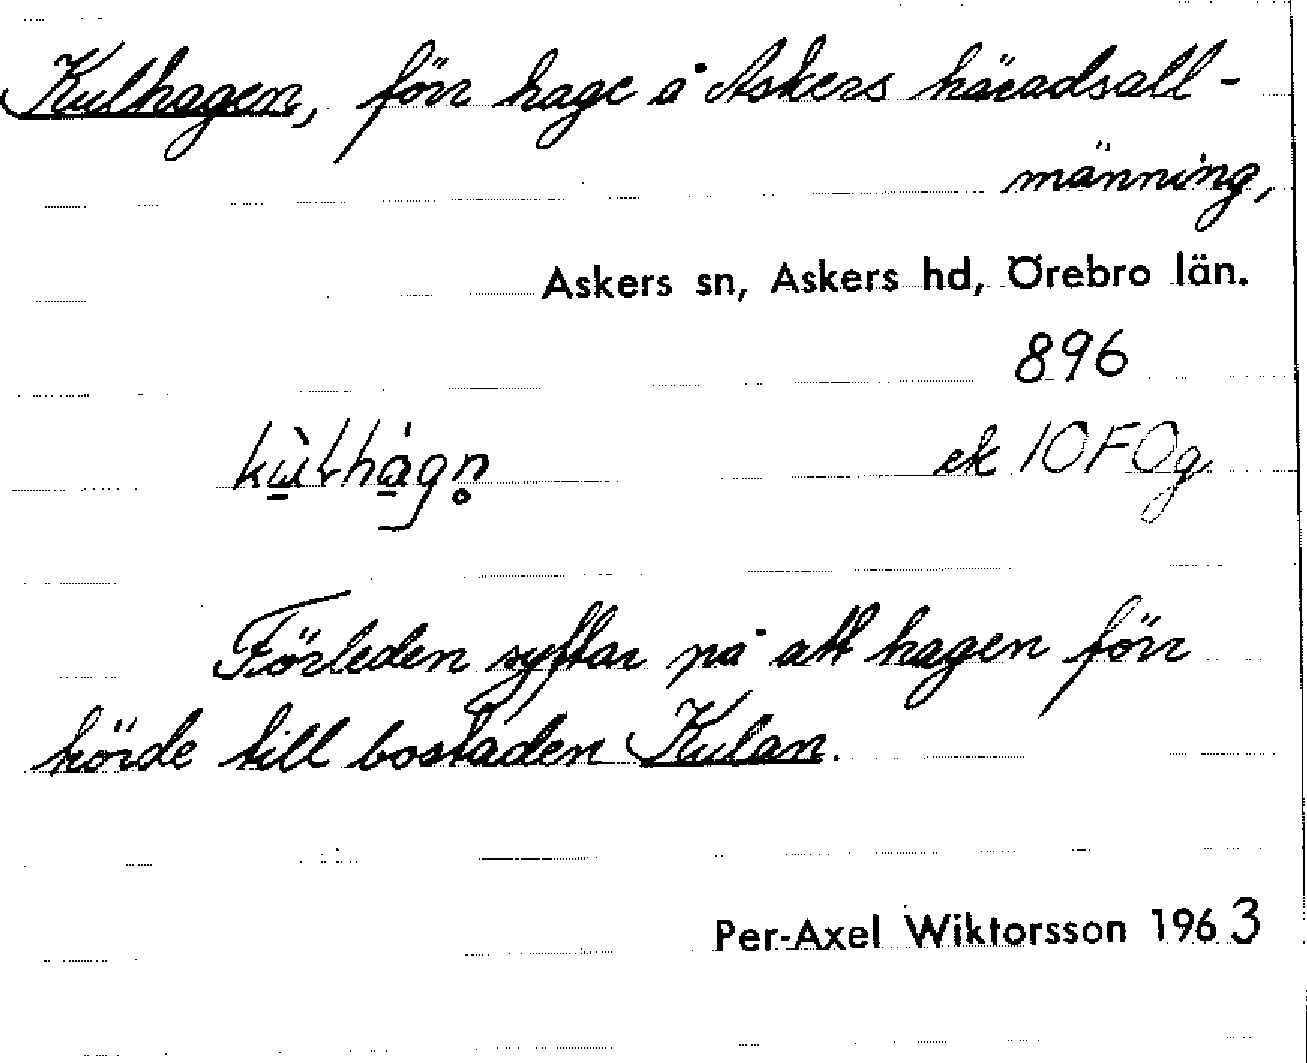 Kulhagen, förr hage å Askers häradsall-
männing,
Askers sn, Askers hd, Örebro län.
896
ek 10F Og
Förleden syftar på att hagen förr
hörde till bostaden Kulan.
Per-Axel Wiktorsson 1963